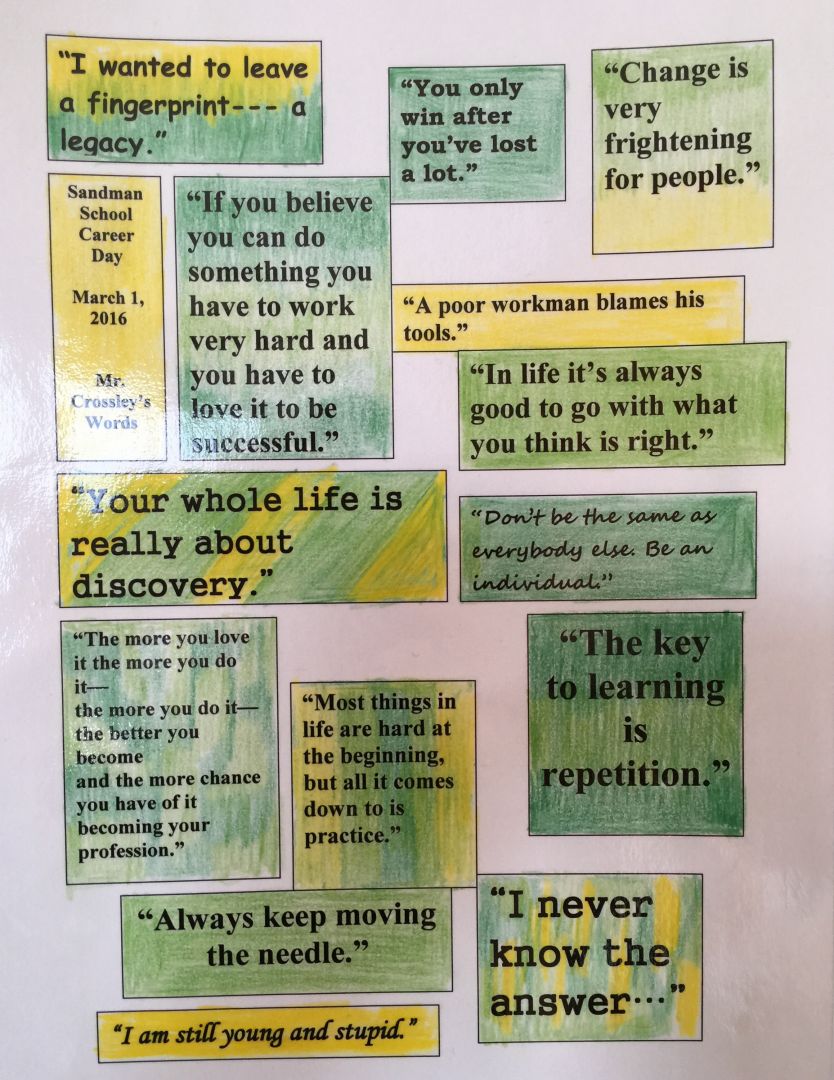 “I wanted to leave
a fingerprint--- a
legacy.”
“You only
win after
you’ve lost
a lot.”
“Change is
very
frightening
for people.”
Sandman
School
Career
Day
March 1,
2016
Mr.
Crossley’s
Words
“If you believe
you can do
something you
have to work
very hard and
you have to
love it to be
successful.”
“A poor workman blames his
tools.”
“In life it’s always
good to go with what
you think is right.”
“Your whole life is
really about
discovery.”
“Don’t be the same as
everybody else. Be an
individual.”
“The more you love
it the more you do
it—
the more you do it—
the better you
become
and the more chance
you have of it
becoming your
profession.”
“Most things in
life are hard at
the beginning,
but all it comes
down to is
practice.”
“The key
to learning
is
repetition.”
“Always keep moving
the needle.”
“I never
know the
answer…”
“I am still young and stupid.”